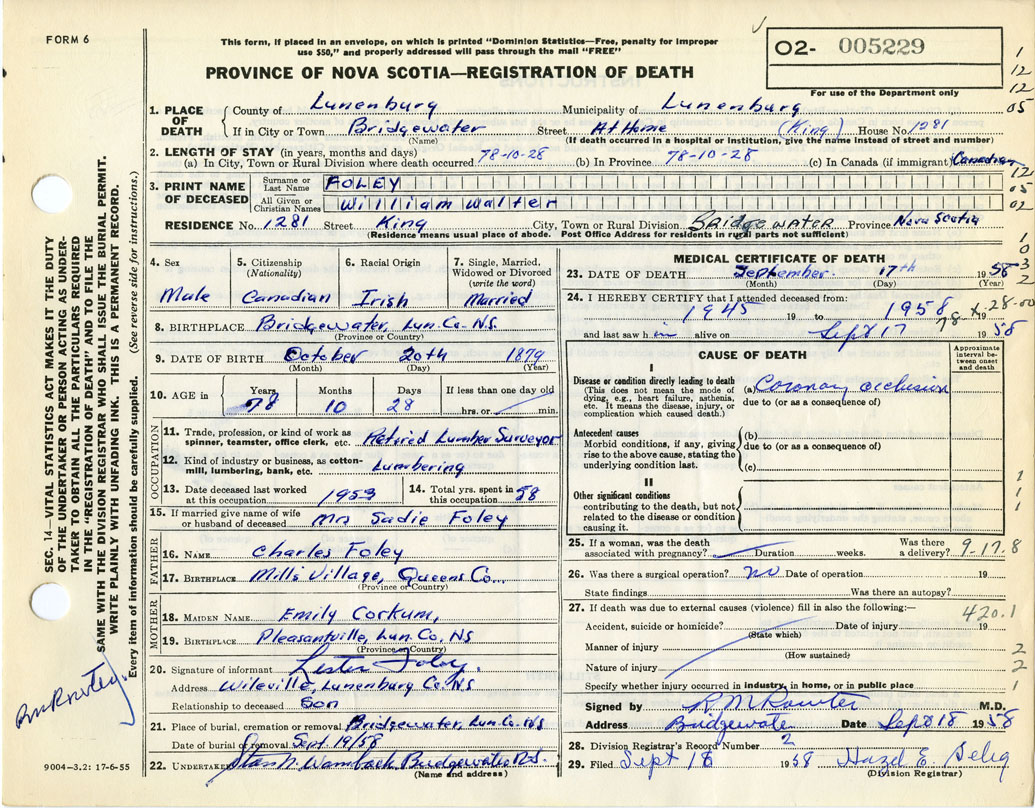 FORM 6
This form, if placed in an envelope, on which is printed "Dominion Statistics—Free, penalty for improper
use $50," and properly addressed will pass through the mail "FREE"
O2- 005229
PROVINCE OF NOVA SCOTIA—REGISTRATION OF DEATH
For use of the Department only
1. PLACE OF DEATH County of Lunenburg Municipality of Lunenburg
If in City or Town Bridgewater Street At Home (King) House No. 1281
(Name) (If death occurred in a hospital or Institution, give the name instead of street and number)
2. LENGTH OF STAY (in years, months and days)
(a) In City, Town or Rural Division where death occurred 78-10-28 (b) In Province 78-10-28 (c) In Canada (if immigrant) Canadian
3. PRINT NAME OF DECEASED Surname or Last Name FOLEY
All Given or Christian Names William Walter
RESIDENCE No. 1281 Street King City, Town or Rural Division BRIDGEWATER Province Nova Scotia
(Residence means usual place of abode. Post Office Address for residents in rural parts not sufficient)
4. Sex Male
5. Citizenship (Nationality) Canadian
6. Racial Origin Irish
7. Single, Married, Widowed or Divorced (write the word) Married
8. BIRTHPLACE Bridgewater, Lun. Co. N.S.
(Province or Country)
9. DATE OF BIRTH October 20th 1879
(Month) (Day) (Year)
10. AGE in Years 78 Months 10 Days 28 If less than one day old hrs. or min.
OCCUPATION
11. Trade, profession, or kind of work as spinner, teamster, office clerk, etc. Retired Lumber Surveyor
12. Kind of industry or business, as cotton-mill, lumbering, bank, etc. Lumbering
13. Date deceased last worked at this occupation 1953
14. Total yrs. spent in this occupation 58
15. If married give name of wife or husband of deceased Mrs Sadie Foley
FATHER
16. NAME Charles Foley
17. BIRTHPLACE Mills Village, Queens Co.
(Province or Country)
MOTHER
18. MAIDEN NAME Emily Corkum,
19. BIRTHPLACE Pleasantville, Lun. Co. NS
(Province or Country)
20. Signature of informant Lester Foley.
Address Wileville, Lunenburg Co. N.S
Relationship to deceased Son
21. Place of burial, cremation or removal Bridgewater, Lun. Co. N.S
Date of burial or removal Sept. 19/58
22. UNDERTAKER Bridgewater N.S.
(Name and address)
MEDICAL CERTIFICATE OF DEATH
23. DATE OF DEATH September 17th 1958
(Month) (Day) (Year)
24. I HEREBY CERTIFY that I attended deceased from:
1945 19 to 1958 19
and last saw him alive on Sept 17 1958
CAUSE OF DEATH
Approximate interval between onset and death
I
Disease or condition directly leading to death (a) Coronary occlusion
(This does not mean the mode of dying, e.g., heart failure, asthenia, etc. It means the disease, injury, or complication which caused death.)
due to (or as a consequence of)
Antecedent causes
Morbid conditions, if any, giving rise to the above cause, stating the underlying condition last.
(b)
due to (or as a consequence of)
(c)
II
Other significant conditions
contributing to the death, but not related to the disease or condition causing it.
25. If a woman, was the death associated with pregnancy? Duration weeks. Was there a delivery? 9-17.8
26. Was there a surgical operation? no Date of operation 19
State findings Was there an autopsy?
27. If death was due to external causes (violence) fill in also the following:— 420.1
Accident, suicide or homicide? Date of injury 19
(State which)
Manner of injury
(How sustained)
Nature of injury
Specify whether injury occurred in industry, in home, or in public place
Signed by M.D.
Address Bridgewater Date Sept 18 1958
28. Division Registrar's Record Number 2
29. Filed Sept 18 1958 Hazel E. Selig
(Division Registrar)
SEC. 14—VITAL STATISTICS ACT MAKES IT THE DUTY
OF THE UNDERTAKER OR PERSON ACTING AS UNDER-
TAKER TO OBTAIN ALL THE PARTICULARS REQUIRED
IN THE "REGISTRATION OF DEATH" AND TO FILE THE
SAME WITH THE DIVISION REGISTRAR WHO SHALL ISSUE THE BURIAL PERMIT.
WRITE PLAINLY WITH UNFADING INK. THIS IS A PERMANENT RECORD.
Every item of information should be carefully supplied. (See reverse side for instructions.)
9004-3.2: 17-6-55